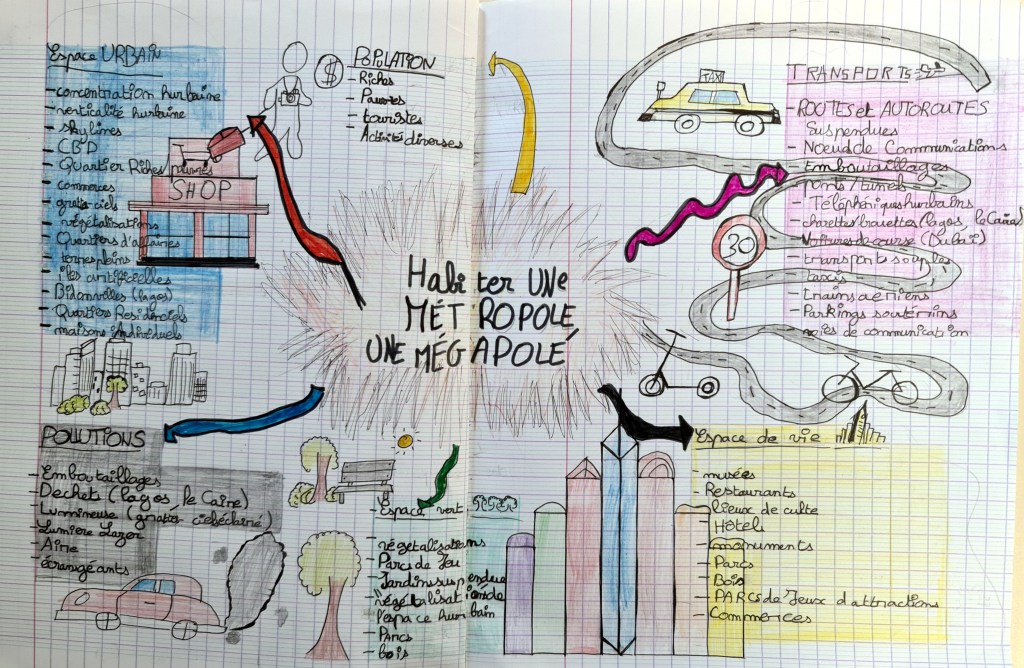 Espace URBAIN
- concentration hurbaine
- verticalité hurbaine
- skylines
- CBD
- Quartier Riches/pauvres
- commerces
- gratte-ciels
- végétalisations
- Quartiers d'affaires
- terres pleins
- îles artificielles
- Bidonvilles (lagos)
- Quartiers Résidenciels
- maisons individuels
SHOP
$
POPULATION
- Riches
- Pauvres
- touristes
- Activité diverses
TAXI
30
TRANSPORTS
- ROUTES et AUTOROUTES
Suspendues
- Noeuds de Communications
- Emboutaillages
- ponts/tunnels
- Téléphériques hurbains
- charettes/brouettes (lagos, le Caire)
- Voitures de course (Dubaï)
- transports souples
- taxis
- trains aériens
- Parkings soutérrins
- voies de communication
Habiter UNE
MÉTROPOLE,
UNE MÉGAPOLÉ
POLUTIONS
- Emboutaillages
- Dechets (lagos, le Caire)
- Lumineuse (gratte-ciel éclairé)
- Lumière Lazer
- Aire
- étrangéants
- Espace vert
- végétalisations
- Parcs de Jeu
- Jardin suspendue
- végétalisations de
l'espace hurbain
- Parcs
- bois
Espace de vie
- musées
- Restaurants
- lieux de culte
- Hôtels
- monuments
- Parcs
- Bois
- PARCS de Jeux d'attractions
- Commerces